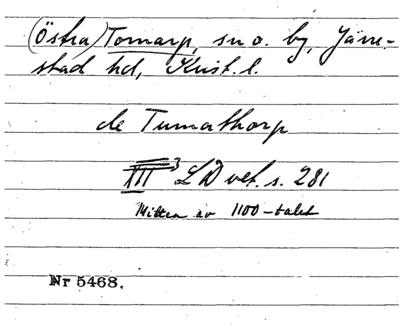 (Östra) Tomarp, sn o. by, Järre-
stad hd, Krist. l.
de Tumathorp
XIII³ LD vet. s. 281
Mitten av 1100-talet
Nr 5468.